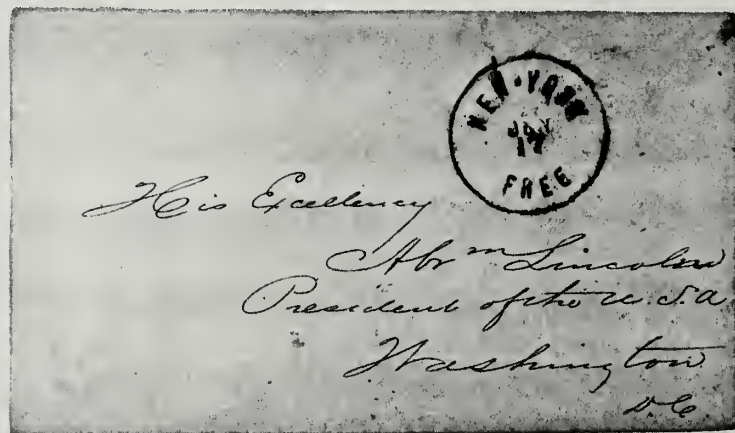 NEW-YORK
JAN
17
FREE
His Excellency
Abrm Lincoln
President of the U.S.A
Washington
D.C.